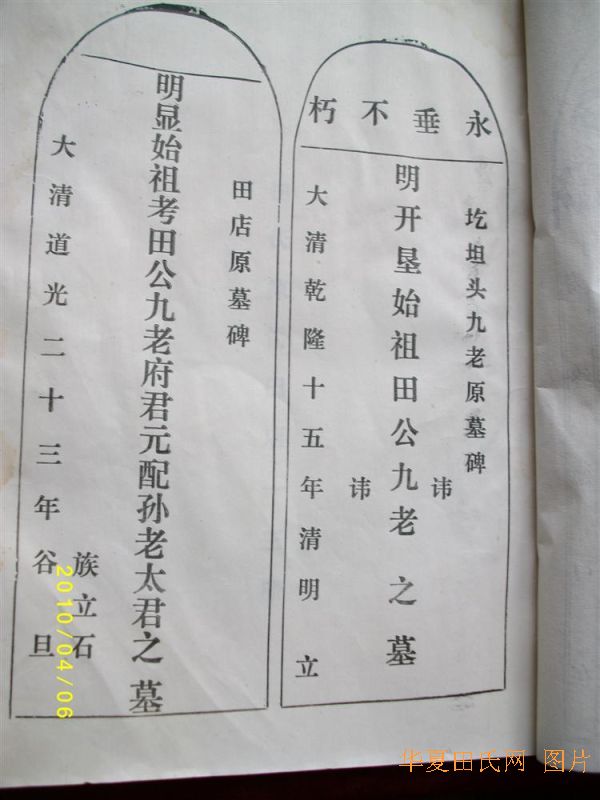 永垂不朽
圪坦头九老原墓碑
讳
明开垦始祖田公九老之墓
讳
大清乾隆十五年清明立
田店原墓碑
明显始祖考田公九老府君元配孙老太君之墓
族立石
大清道光二十三年谷旦
2010/04/06
华夏田氏网 图片